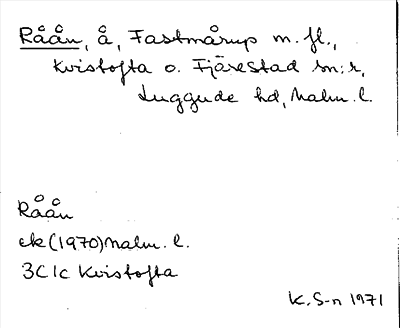 Råån, å, Fastmårup m. fl.,
Kvistofta o. Fjärestad sn:r,
Luggude hd, Malm. l.
Råån
ek (1970) Malm. l.
3C 1c Kvistofta
K. S-n 1971